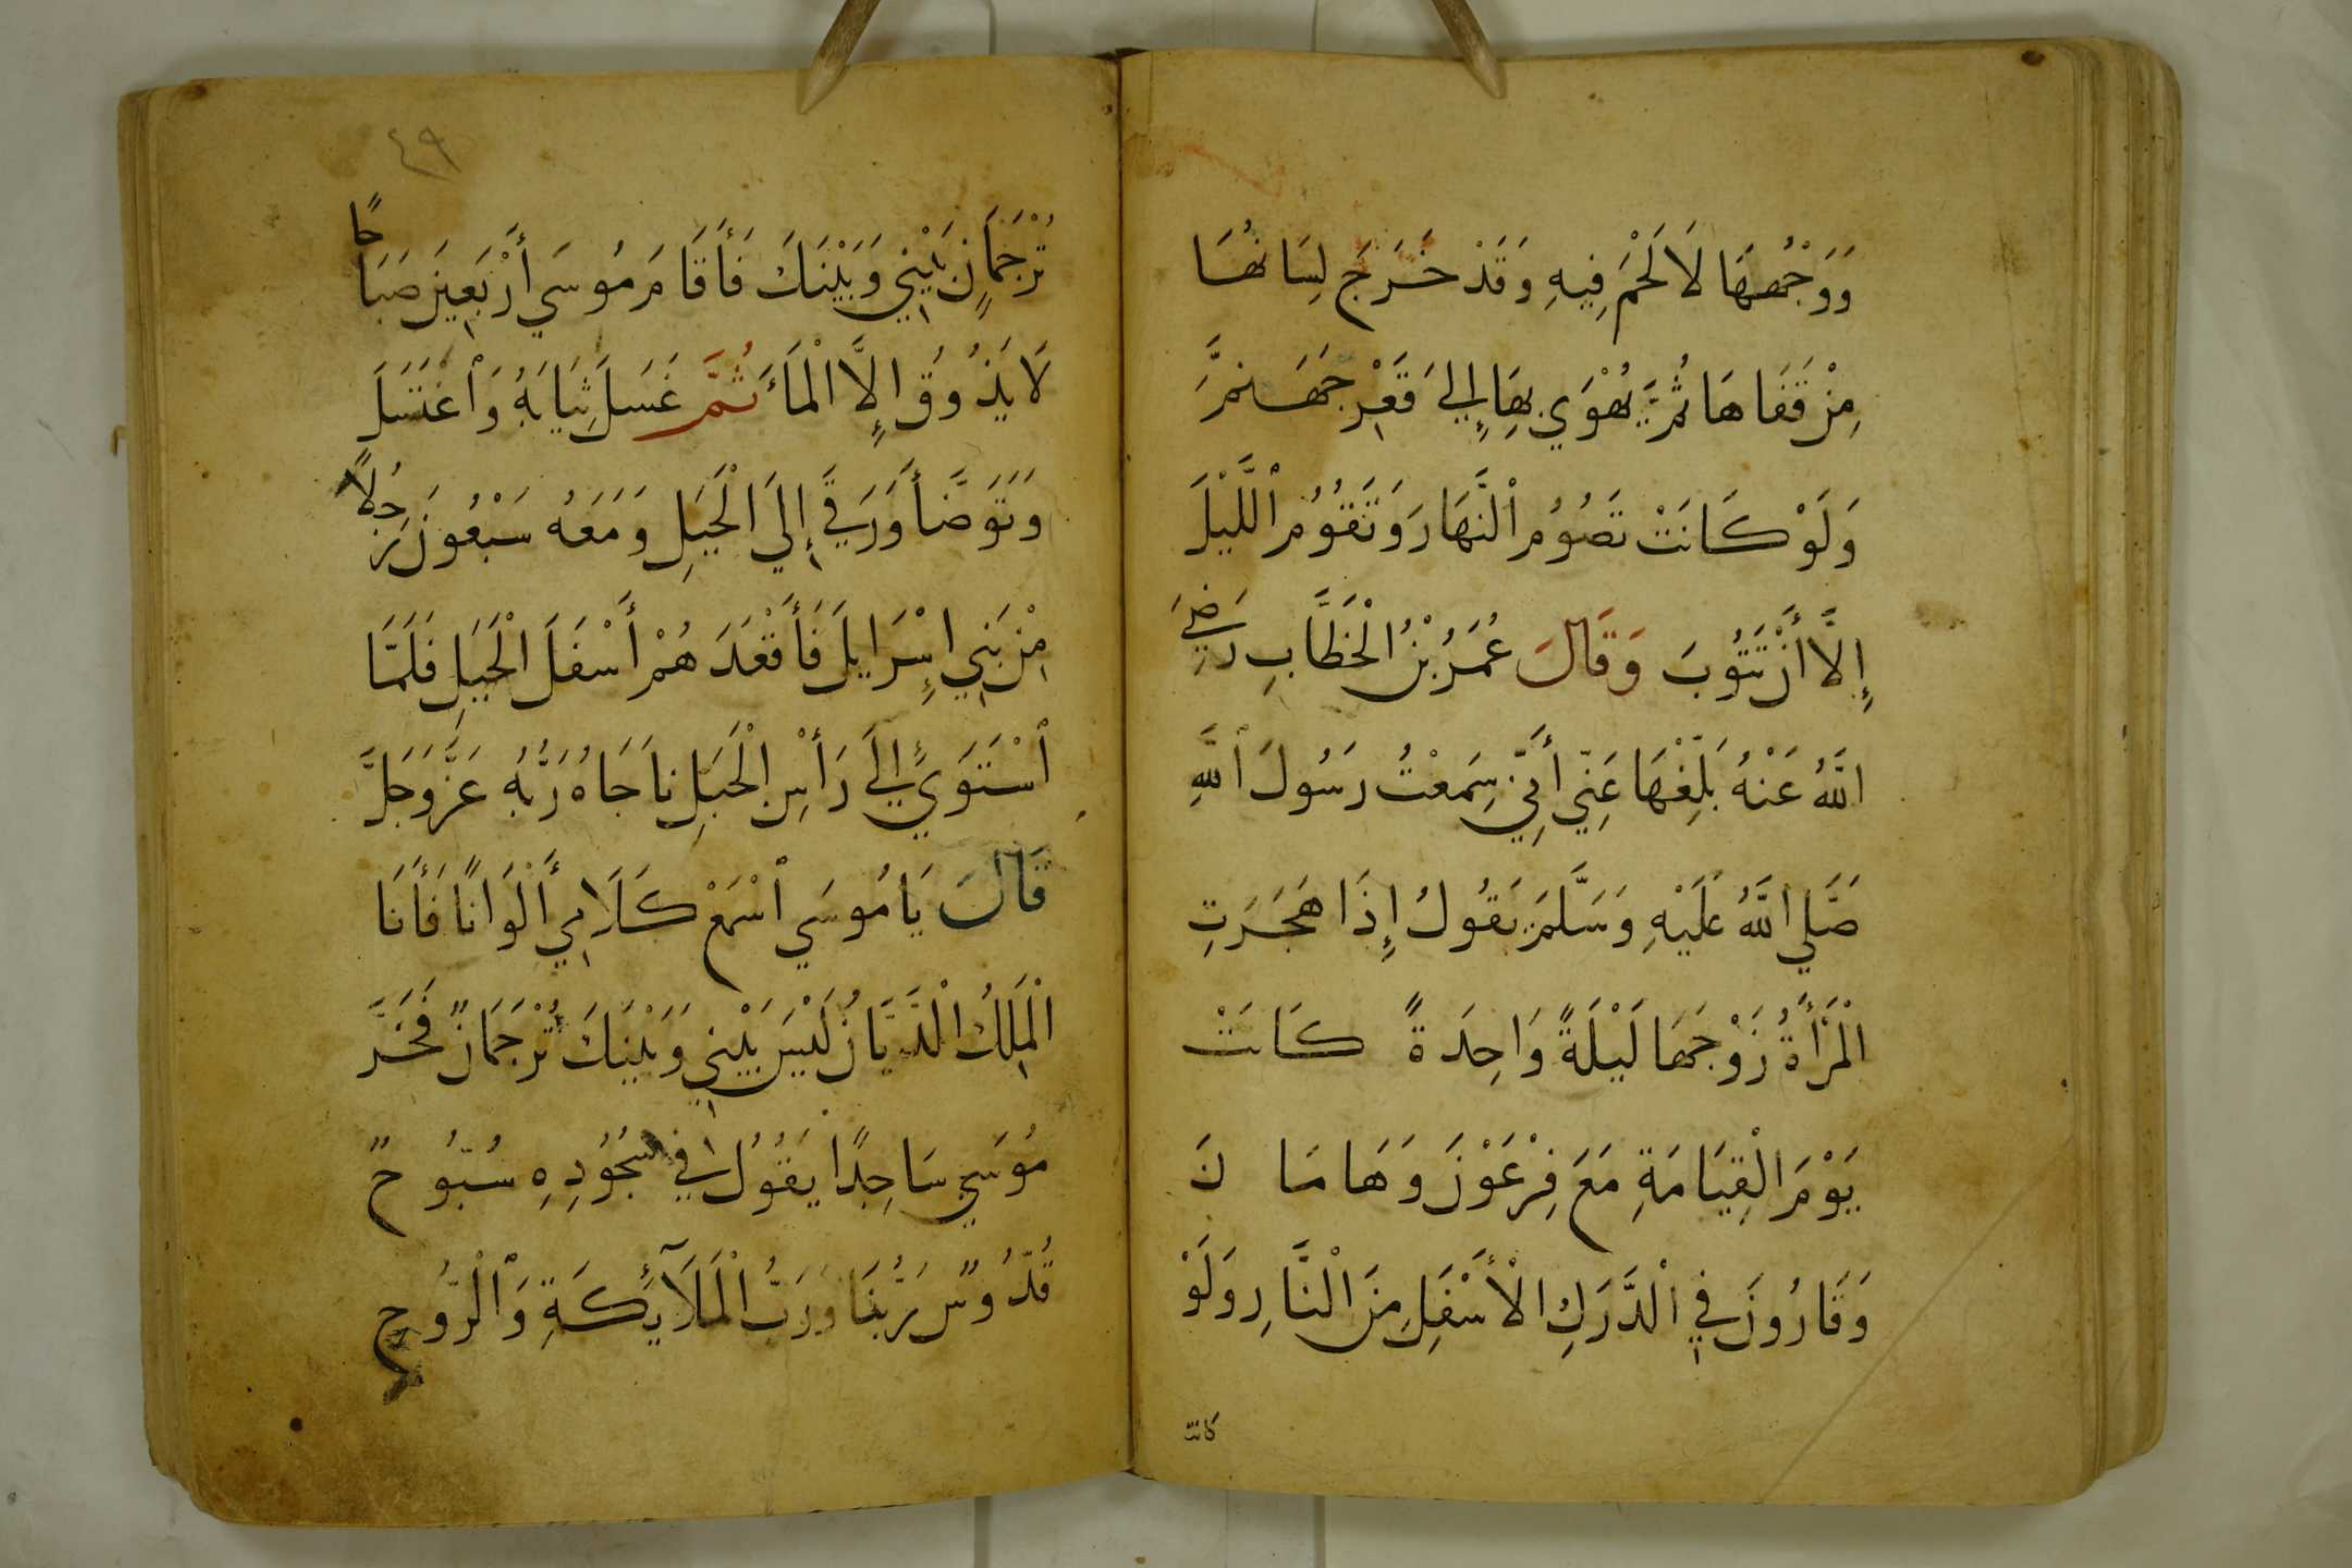 وَوَجْهُهَا لَا لَحْمَ فِيهِ وَقَدْ خَرَجَ لِسَانُهَا
مِنْ قَفَاهَا ثُمَّ يُهْوَي بِهَا إِلَيَ قَعْرِ جَهَنَّمَ
وَلَوْ كَانَتْ تَصُوُمُ ٱلنَّهَارَ وَتَقُوُمُ ٱللَّيْلَ
إِلَّا أَنْ تَتُوُبَ وَقَالَ عُمَرُ بْنُ الْخَطَّابِ رَضِيَ
اللَّهُ عَنْهُ بَلِّغْهَا عَنِّي أَنِّي سَمِعْتُ رَسُولَ ٱللَّهِ
صَلَّي اللَّهُ عَلَيْهِ وَسَلَّمَ يَقُولُ إِذَا هَجَرَتِ
الْمَرْأَةُ زَوْجَهَا لَيْلَةً وَاحِدَةً كَانَتْ
يَوْمَ الْقِيَامَةِ مَعَ فِرْعَوْنَ وَهَامَانَ
وَقَارُونَ فِي ٱلدَّرَكِ الْأَسْفَلِ مِنَ النَّارِ وَلَوْ
كانت
٤٩
تُرْجَمَانٌ بَيْنِي وَبَيْنَكَ فَأَقَامَ مُوسَي أَرْبَعِينَ صَبَاحًا
لَا يَذُوُقُ إِلَّا الْمَاءَ ثُمَّ غَسَلَ ثِيَابَهُ وَٱغْتَسَلَ
وَتَوَضَّأَ وَرَقَي إِلَيَ الْجَبَلِ وَمَعَهُ سَبْعُونَ رَجُلًا
مِنْ بَنِي إِسْرَايلَ فَأَقْعَدَهُمْ أَسْفَلَ الْجَبَلِ فَلَمَّا
ٱسْتَوَيَ إِلَيَ رَأْسِ الْجَبَلِ نَاجَاهُ رَبُّهُ عَزَّ وَجَلَّ
قَالَ يَا مُوسَي ٱسْمَعْ كَلَامِي أَلْوَانًا فَأَنَا
الْمَلِكُ الْدَّيَّانُ لَيْسَ بَيْنِي وَبَيْنَكَ تُرْجَمَانٌ فَخَرَّ
مُوسَي سَاجِدًا يَقُوُلُ فِي سُجُوُدِهِ سُبُّوُحٌ
قُدُّوُسٌ رَبُّنَا وَرَبُّ الْمَلَآئِكَةِ وَٱلْرُّوُحِ